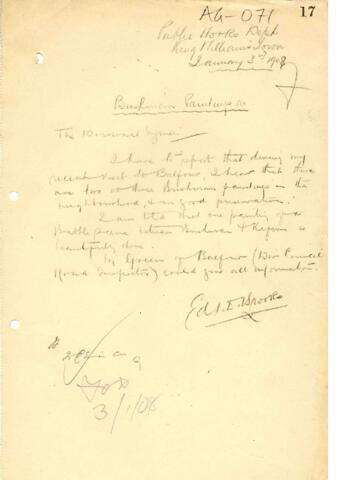 AG-071
17
Public Works Dept
King Williams Town
January 3rd 1908
Bushman Paintings
The
I have to report that during my
recent visit to Balfour, I hear that there
are two or three Bushman paintings in the
neighbourhood, & in good preservation.
I am told that one painting of a
Battle scene between Bushman & Kafirs is
beautifully done.
Mr Green of Balfour (Div Council
Road Inspector) could give all information.
Ed. E. Brooke
3/1/08